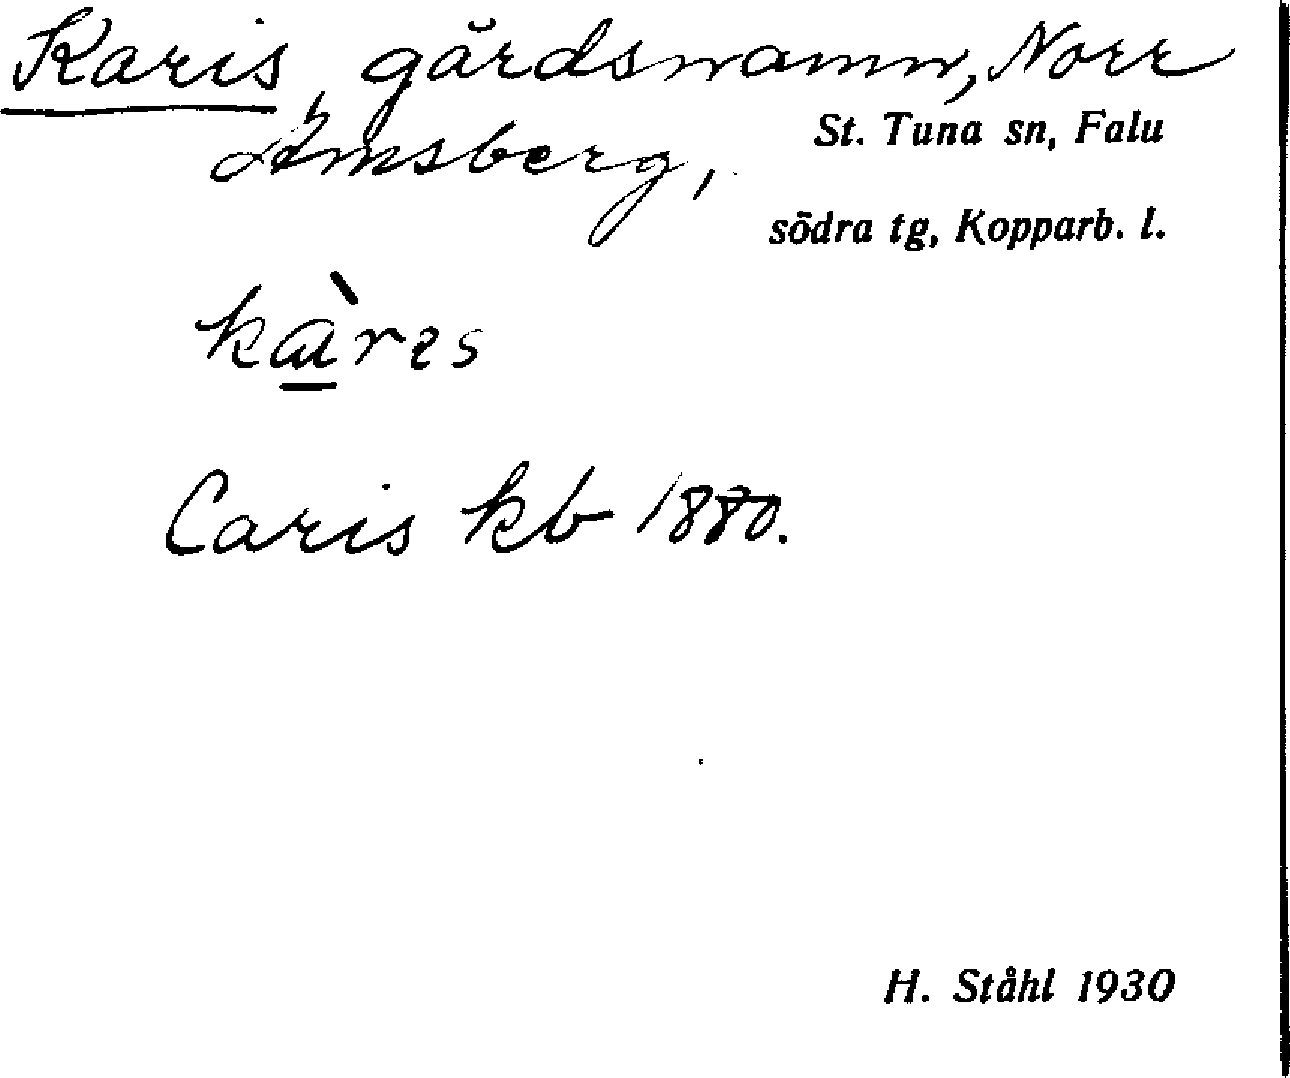 Karis, gårdsnamn, Norr
Amsberg,
St. Tuna sn, Falu
södra tg, Kopparb. l.
kàres
Caris kb 1880.
H. Ståhl 1930